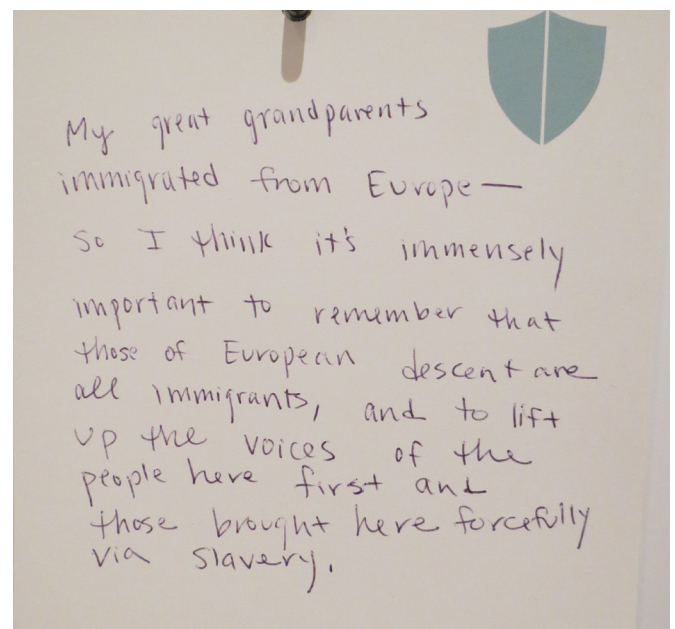 My great grandparents
immigrated from Europe —
so I think it's immensely
important to remember that
those of European descent are
all immigrants, and to lift
up the voices of the
people here first and
those brought here forcefully
via slavery.